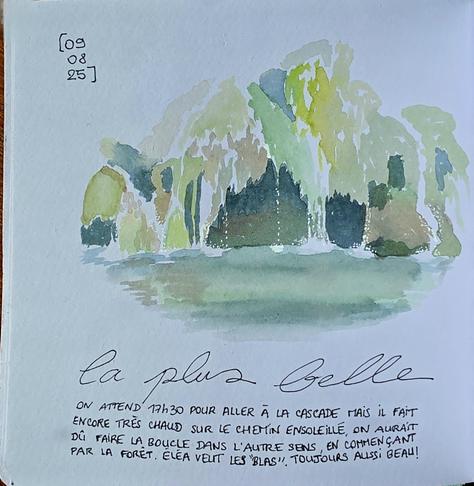 [09
08
25]
la plus belle
ON ATTEND 17H30 POUR ALLER À LA CASCADE MAIS IL FAIT
ENCORE TRÈS CHAUD SUR LE CHEMIN ENSOLEILLÉ, ON AURAIT
DÛ FAIRE LA BOUCLE DANS L'AUTRE SENS, EN COMMENÇANT
PAR LA FORÊT. ÉLÉA VEUT LES "BLAS". TOUJOURS AUSSI BEAU!